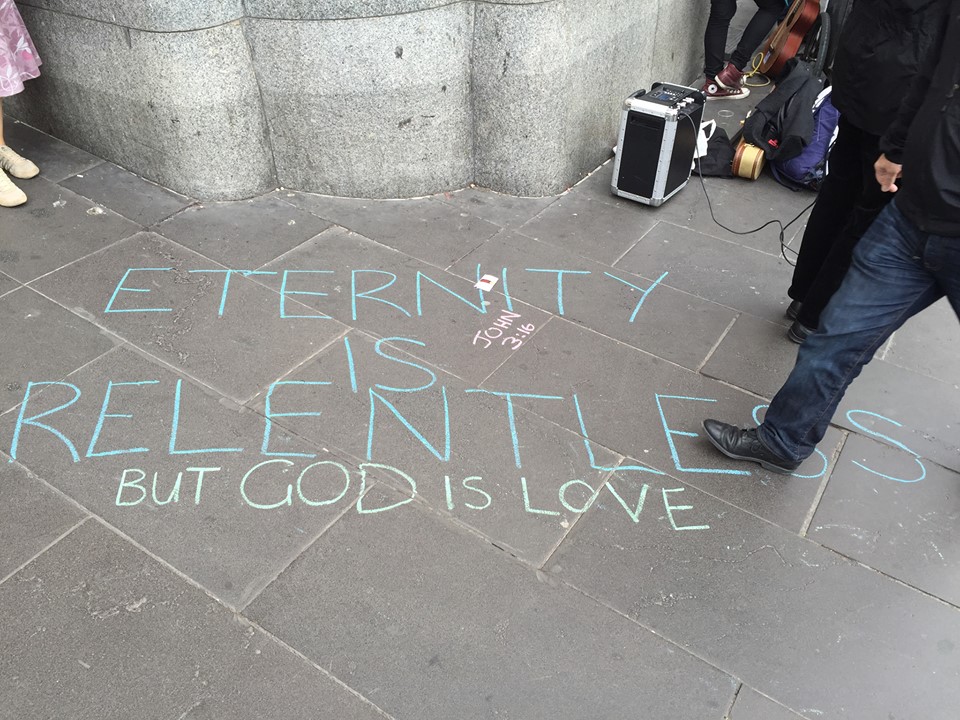 ETERNITY
JOHN
3:16
IS
RELENTLESS
BUT GOD IS LOVE